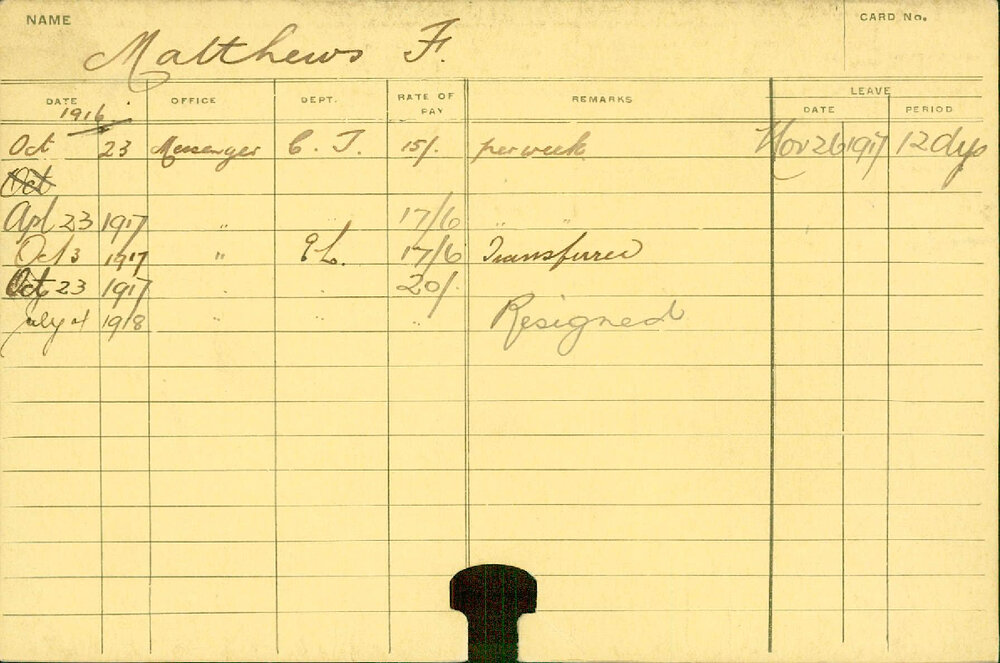 NAME
CARD No.
Matthews F.
DATE OFFICE DEPT. RATE OF PAY REMARKS LEAVE
DATE PERIOD
1916
Oct 23 Messenger C. T. 15/. per week Nov 26 1917 12 dys
Oct
Apl 23 1917 " 17/6 " "
Oct 3 1917 " 17/6 Transferred
Oct 23 1917 " " 20/.
July 4 1918 " " " Resigned